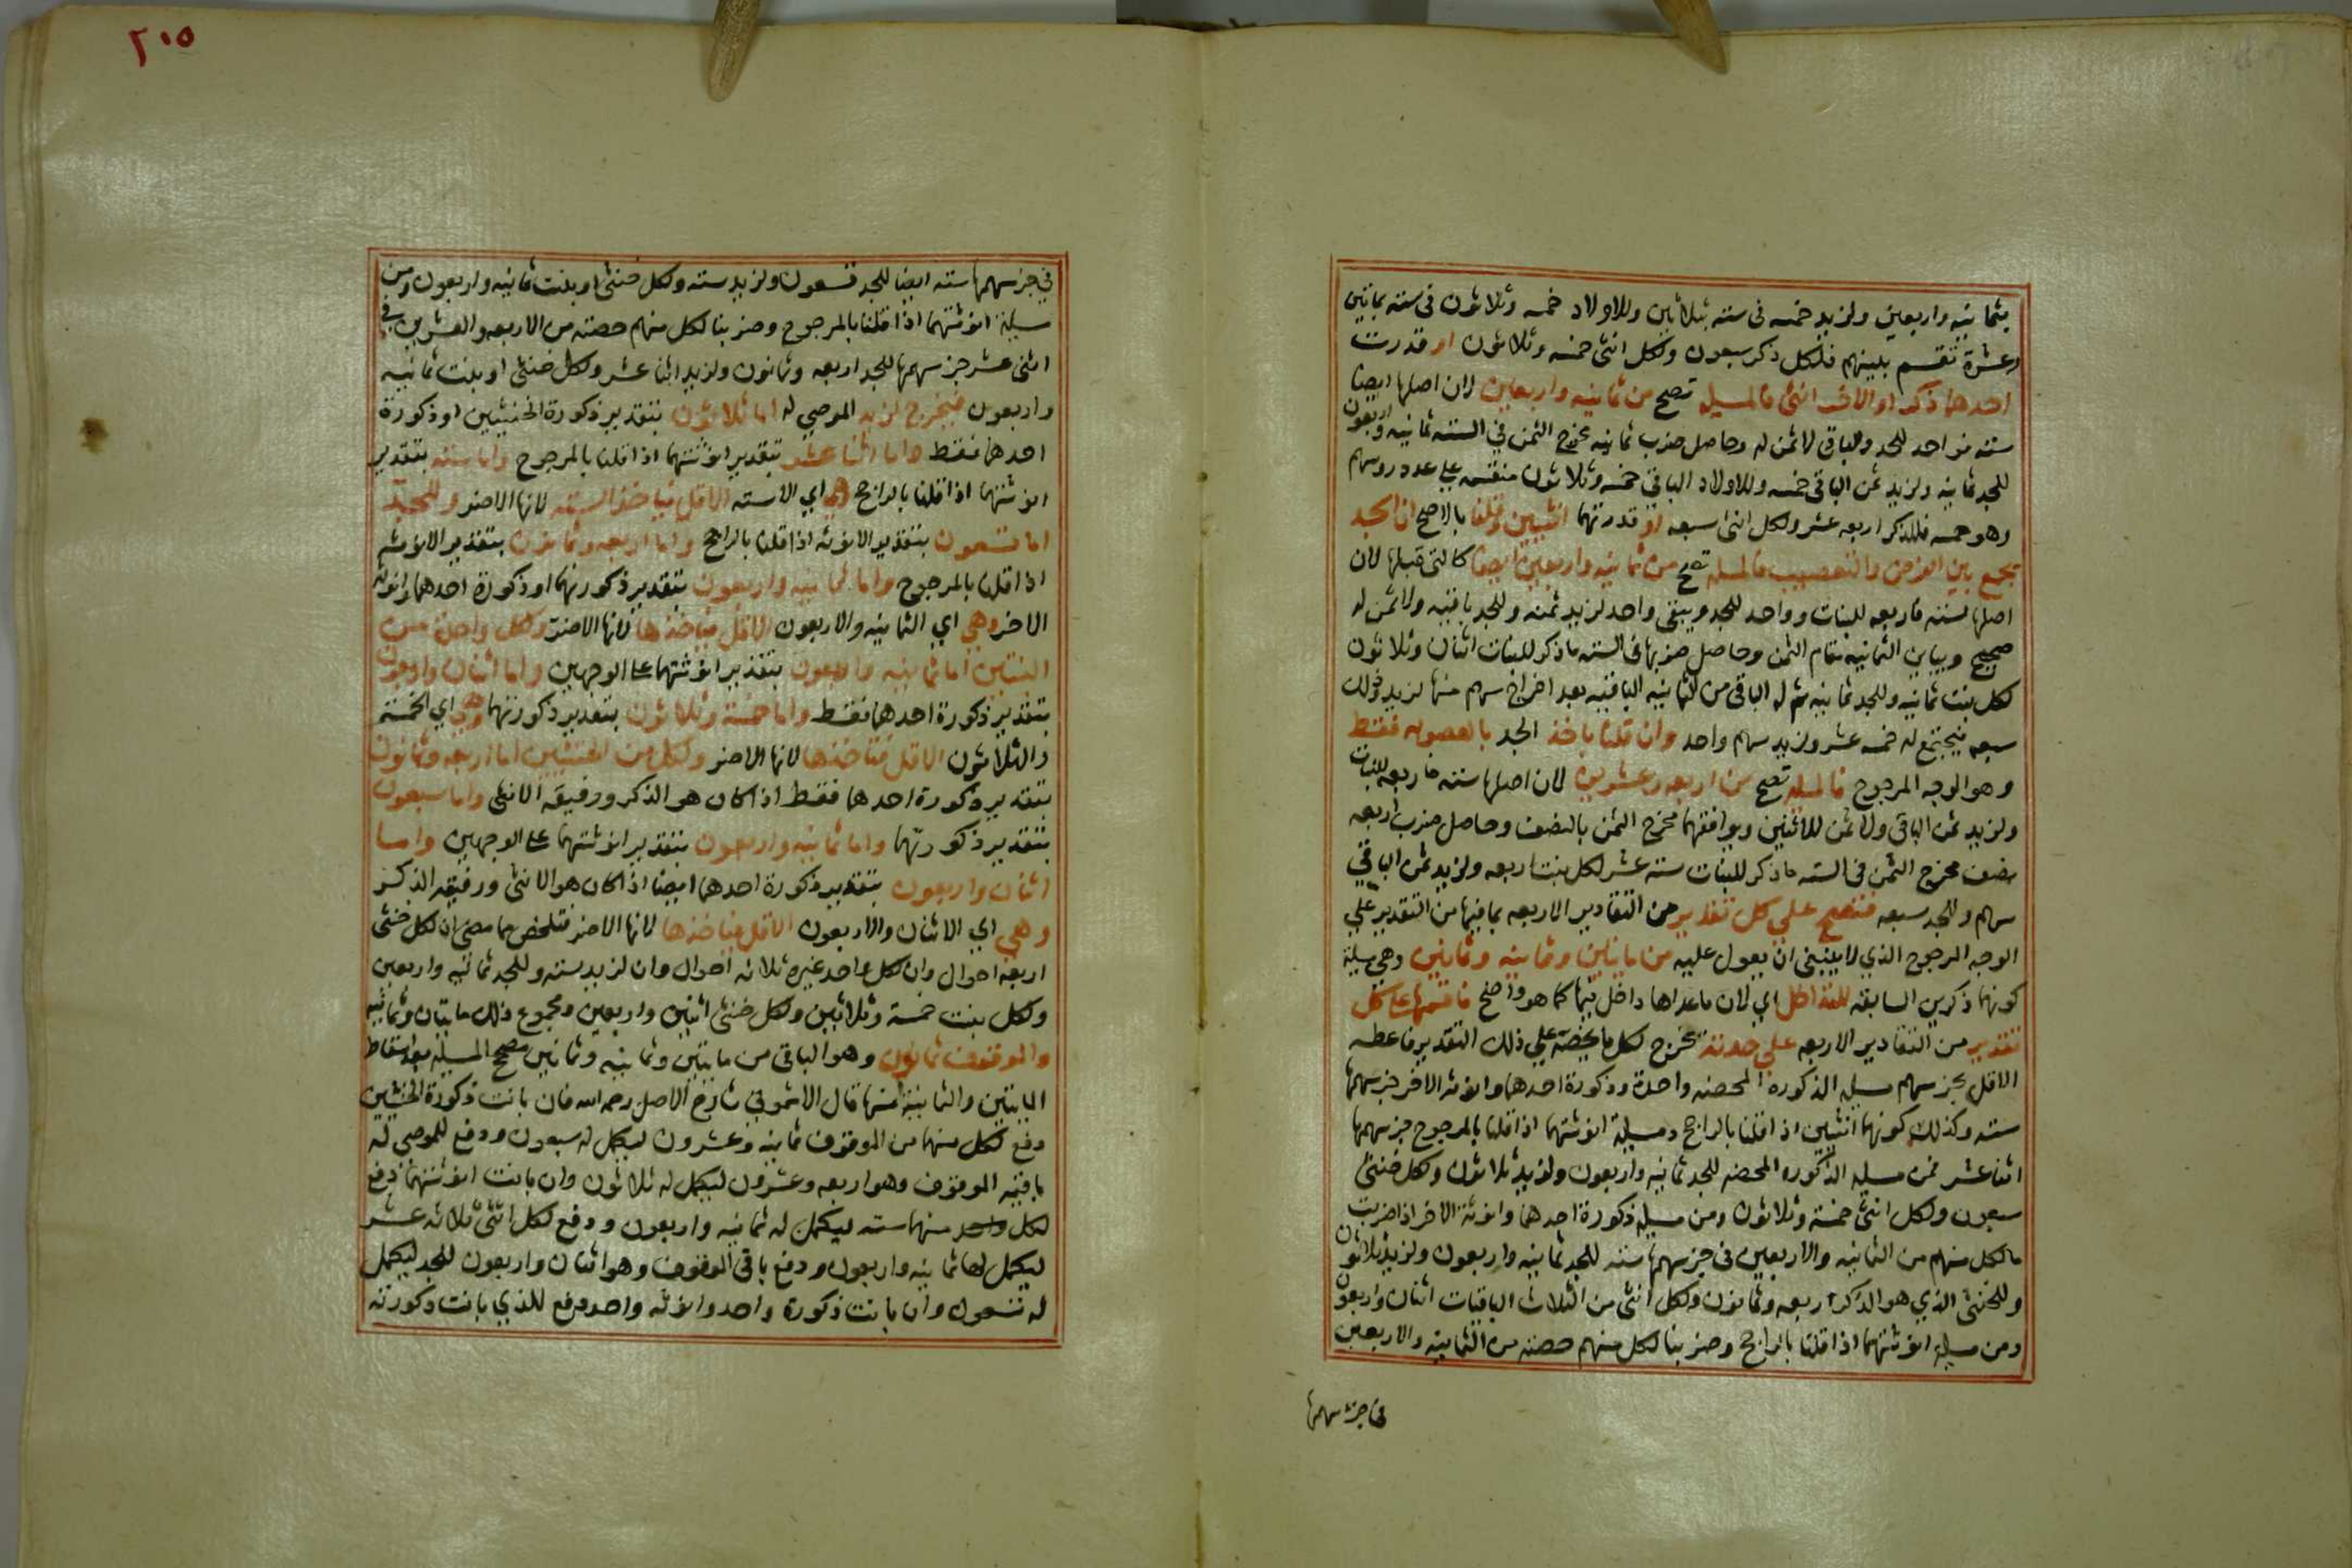 بثمانيه واربعين ولزيد خمسه في سته بثلاثين وللاولاد خمسه وثلاثون في سته بمايتين
وعشرة تقسم بينهم فلكل ذكر سبعون ولكل انثى خمسه وثلاثون او قدرت
احدهما ذكر او الاخر انثى فالمسيله تصح من ثمانيه واربعين لان اصلها ايضا
سته فواحد للجد والباقي لا ثمن له وحاصل ضرب ثمانيه مخرج الثمن في السته ثمانيه واربعون
للجد ثمانيه ولزيد ثمن الباقي خمسه وللاولاد الباقي خمسه وثلاثون منقسمه على عدد روسهم
وهو خمسه فللذكر اربعه عشر ولكل انثى سبعه او قدرتهما انثيين وقلنا بالراجح ان الجد
يجمع بين الفرض والتعصيب فالمسله تصح من ثمانيه واربعين ايضا كالتي قبلها لان
اصلها سته فاربعه للبنات وواحد للجد ويبقى واحد لزيد ثمنه وللجد باقيه ولا ثمن له
صحيح ويباين الثمانيه مقام الثمن وحاصل ضربها في السته ما ذكر للبنات اثنان وثلاثون
لكل بنت ثمانيه وللجد ثمانيه ثم له الباقي من الثمانيه الباقيه بعد اخراج سهم منها لزيد وذلك
سبعه فيجتمع له خمسه عشر ولزيد سهم واحد وان قلنا ياخذ الجد بالعصوبه فقط
وهو الوجه المرجوح فالمسله تصح من اربعه وعشرين لان اصلها سته فاربعه للبنات
ولزيد ثمن الباقي ولا ثمن للاثنين ويوافقهما مخرج الثمن بالنصف وحاصل ضرب اربعه
نصف مخرج الثمن في السته ما ذكر للبنات سته عشر لكل بنت اربعه ولزيد ثمن الباقي
سهم وللجد سبعه فتصح على كل تقدير من التقادير الاربعه بما فيها من التقدير على
الوجه المرجوح الذي لا ينبغي ان يعول عليه من مايتين وثمانيه وثمانين وهي مسيلة
كونهما ذكرين السابقه للتداخل اي لان ما عداها داخل فيها كما هو واضح فاقسمها على كل
تقدير من التقادير الاربعه على حدته يخرج لكل ما يخصه على ذلك التقدير فاعطه
الاقل بجز سهم مسيله الذكورة المحضه واحدة وذكورة احدهما وانوثه الاخر جز سهمها
سته وكذلك كونهما انثيين اذا قلنا بالراجح ومسيلة انوثتهما اذا قلنا بالمرجوح جز سهمها
اثنا عشر فمن مسيله الذكوره المحضه للجد ثمانيه واربعون ولزيد ثلاثون ولكل خنثى
سبعون ولكل انثى خمسة وثلاثون ومن مسيله ذكورة احدهما وانوثة الاخر اذا ضربت
ما لكل منهم من الثمانيه والاربعين في جز سهمها سته للجد ثمانيه واربعون ولزيد ثلاثون
وللخنثى الذي هو الذكر اربعه وثمانون ولكل انثى من الثلاث الباقيات اثنان واربعون
ومن مسيله انوثتهما اذا قلنا بالراجح وضربنا لكل منهم حصته من الثمانيه والاربعين
في جز سهمها
٢٠٥
في جز سهمها سته ايضا للجد تسعون ولزيد سته ولكل خنثى او بنت ثمانيه واربعون ومن
مسيلة انوثتهما اذا قلنا بالمرجوح وضربنا لكل منهم حصته من الاربعه والعشرين في
اثنى عشر جز سهمها للجد اربعه وثمانون ولزيد اثنا عشر ولكل خنثى او بنت ثمانيه
واربعون فيخرج لزيد الموصى له اما ثلاثون بتقدير ذكورة الخنثيين او ذكورة
احدهما فقط واما اثنا عشر بتقدير انوثتهما اذا قلنا بالمرجوح واما سته بتقدير
انوثتهما اذا قلنا بالراجح وهي اي الاسته الاقل فياخذ السته لانها الاضر وللجد
اما تسعون بتقدير الانوثه اذا قلنا بالراجح واما اربعه وثمانون بتقدير الانوثه
اذا قلنا بالمرجوح واما ثمانيه واربعون بتقدير ذكورتهما او ذكورة احدهما وانوثة
الاخر وهي اي الثمانيه والاربعون الاقل فياخذها لانها الاضر ولكل واحدة من
البنتين اما ثمانيه واربعون بتقدير انوثتهما على الوجهين واما اثنان واربعون
بتقدير ذكورة احدهما فقط واما خمسة وثلاثون بتقدير ذكورتهما وهي اي الخمسة
والثلاثون الاقل فتاخذها لانها الاضر ولكل من الخنثيين اما اربعه وثمانون
بتقدير ذكورة احدهما فقط اذا كان هو الذكر ورفيقه الانثى واما سبعون
بتقدير ذكورتهما واما ثمانيه واربعون بتقدير انوثتهما على الوجهين واما
اثنان واربعون بتقدير ذكورة احدهما ايضا اذا كان هو الانثى ورفيقه الذكر
وهي اي الاثنان والاربعون الاقل فياخذها لانها الاضر فتلخص مما مضى ان لكل خنثى
اربعة احوال وان لكل واحد غيره ثلاثه احوال وان لزيد سته وللجد ثمانيه واربعين
ولكل بنت خمسة وثلاثين ولكل خنثى اثنين واربعين ومجموع ذلك مايتان وثمانيه
والموقوف ثمانون وهو الباقي من مايتين وثمانيه وثمانين مصحح المسيلة بعد اسقاط
المايتين والثمانية منها قال الاشموني شارح الاصل رحمه الله فان بانت ذكورة الخنثيين
دفع لكل منهما من الموقوف ثمانيه وعشرون ليكمل له سبعون ودفع للموصى له
باقيه الموقوف وهو اربعه وعشرون ليكمل له ثلاثون وان بانت انوثتهما دفع
لكل واحد منهما سته ليكمل له ثمانيه واربعون ودفع لكل انثى ثلاثه عشر
ليكمل لها ثمانيه واربعون ودفع باقي الموقوف وهو اثنان واربعون للجد ليكمل
له تسعون وان بانت ذكورة واحد وانوثه واحد دفع للذي بانت ذكورته